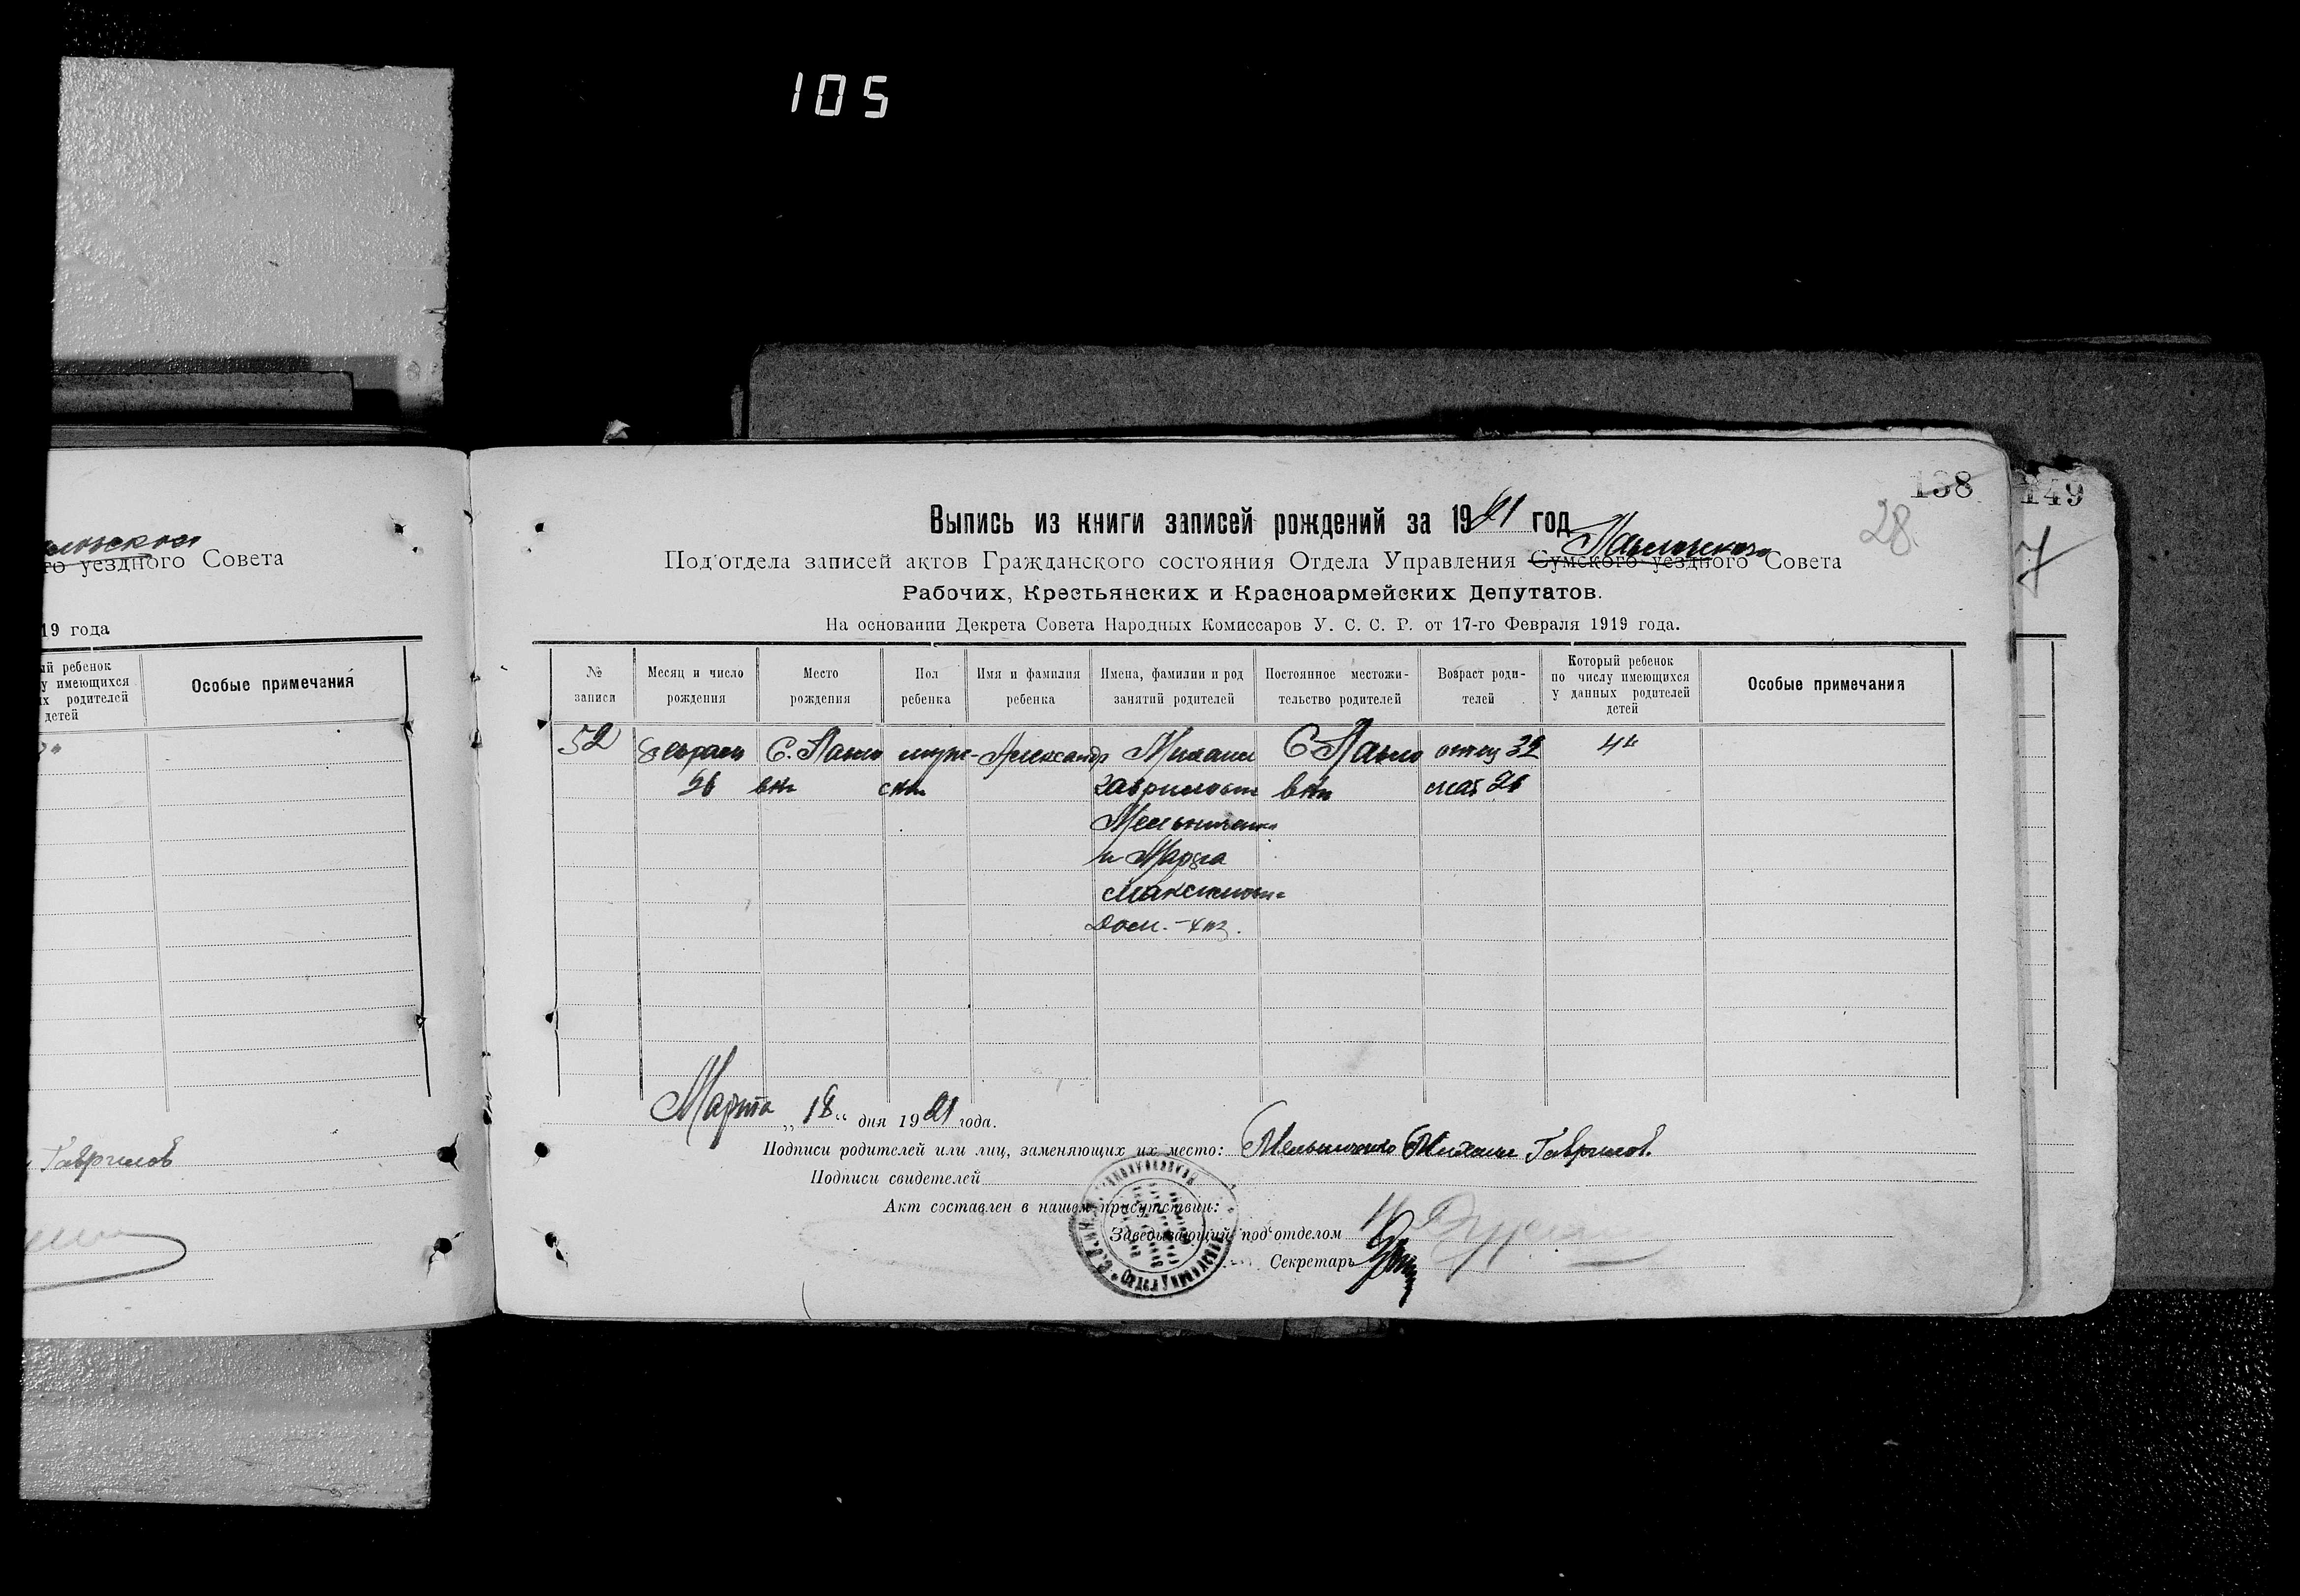 105
138
149
28.
7
Выпись из книги записей рождений за 1921 год
Павловского
Под'отдела записей актов Гражданского состояния Отдела Управления Сумского уездного Совета
Рабочих, Крестьянских и Красноармейских Депутатов.
На основании Декрета Совета Народных Комиссаров У. С. С. Р. от 17-го Февраля 1919 года.
го уездного Совета
19 года
ый ребенок
у имеющихся
х родителей
детей
Особые примечания
№ записи
Месяц и число рождения
Место рождения
Пол ребенка
Имя и фамилия ребенка
Имена, фамилии и род занятий родителей
Постоянное местожи- тельство родителей
Возраст роди- телей
Который ребенок по числу имеющихся у данных родителей детей
Особые примечания
52 Февраля С. Павло муж- Александр Михаил С Павло отец 32 4й
26 вки ски Гаврилович вки мат 26
Мельниченко
и Марфа
Максимовна
Дом.-хоз.
Марта „18“ дня 1921 года.
Подписи родителей или лиц, заменяющих их место: Мельниченко Михаил Гаврилов.
Подписи свидетелей
Акт составлен в нашем присутствии:
Заведывающий под'отделом
Секретарь
Гаврилов